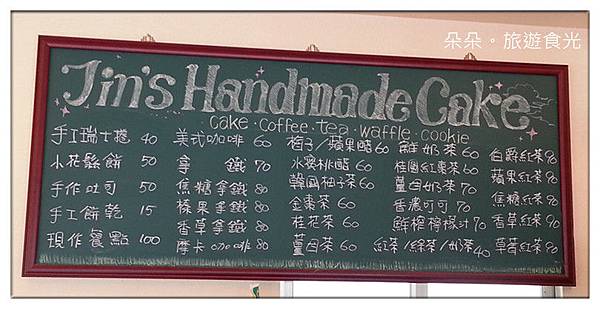 朵朵。旅遊食光
Jin's Handmade Cake
cake·coffee·tea·waffle·cookie
手工瑞士捲 40
小花鬆餅 50
手作吐司 50
手工餅乾 15
現作餐點 100
美式咖啡 60
拿鐵 70
焦糖拿鐵 80
榛果拿鐵 80
香草拿鐵 80
摩卡咖啡 80
梅子/蘋果醋 60
水蜜桃醋 60
韓國柚子茶 60
金棗茶 60
桂花茶 60
薑母茶 60
鮮奶茶 60
桂圓紅棗茶 60
薑母奶茶 70
香濃可可 70
鮮榨檸檬汁 70
紅茶/綠茶/奶茶 40
伯爵紅茶 90
蘋果紅茶 90
焦糖紅茶 90
香草紅茶 90
草莓紅茶 90